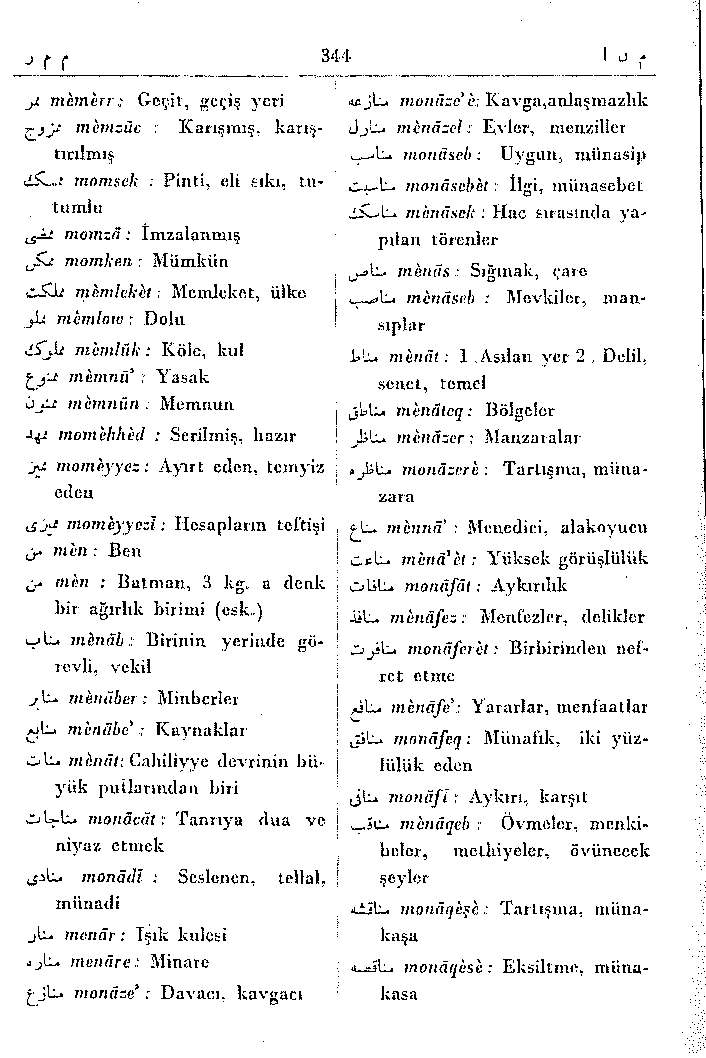 م م ر 344 م ن ا
ممر mèmèrr : Geçit, geçiş yeri
ممزوج mèmzūc : Karışmış, karış-
tırılmış
ممسك momsek : Pinti, eli sıkı, tu-
tumlu
ممضی momzā : İmzalanmış
ممکن momken : Mümkün
مملکت mèmlekèt : Memleket, ülke
مملو mèmlow : Dolu
مملوك mèmlūk : Köle, kul
ممنوع mèmnū' : Yasak
ممنون mèmnūn : Memnun
ممهد momèhhèd : Serilmiş, hazır
ممیز momèyyez : Ayırt eden, temyiz
eden
ممیزی momèyyezī : Hesapların teftişi
من mèn : Ben
من mèn : Batman, 3 kg. a denk
bir ağırlık birimi (esk.)
مناب mènāb : Birinin yerinde gö-
revli, vekil
منابر mènāber : Minberler
منابع mènābe' : Kaynaklar
منات mènāt : Cahiliyye devrinin bü-
yük putlarından biri
مناجات monācāt : Tanrıya dua ve
niyaz etmek
منادی monādī : Seslenen, tellal,
münadi
منار menār : Işık kulesi
مناره menāre : Minare
منازع monāze' : Davacı, kavgacı
منازعه monāze'è : Kavga, anlaşmazlık
منازل mènāzel : Evler, menziller
مناسب monāseb : Uygun, münasip
مناسبت monāsebèt : İlgi, münasebet
مناسك mènāsek : Hac sırasında ya-
pılan törenler
مناص mènās : Sığınak, çare
مناصب mènāseb : Mevkiler, man-
sıplar
مناط mènāt : 1 .Asılan yer 2 . Delil,
senet, temel
مناطق mènāteq : Bölgeler
مناظر mènāzer : Manzaralar
مناظره monāzerè : Tartışma, müna-
zara
مناع mènnā' : Menedici, alakoyucu
مناعت mènā'èt : Yüksek görüşlülük
منافات monāfāt : Aykırılık
منافذ mènāfez : Menfezler, delikler
منافرت monāferèt : Birbirinden nef-
ret etme
منافع mènāfe' : Yararlar, menfaatlar
منافق monāfeq : Münafık, iki yüz-
lülük eden
منافی monāfī : Aykırı, karşıt
مناقب mènāqeb : Övmeler, menki-
beler, methiyeler, övünecek
şeyler
مناقشه monāqèşè : Tartışma, müna-
kaşa
مناقصه monāqèsè : Eksiltme, müna-
kasa